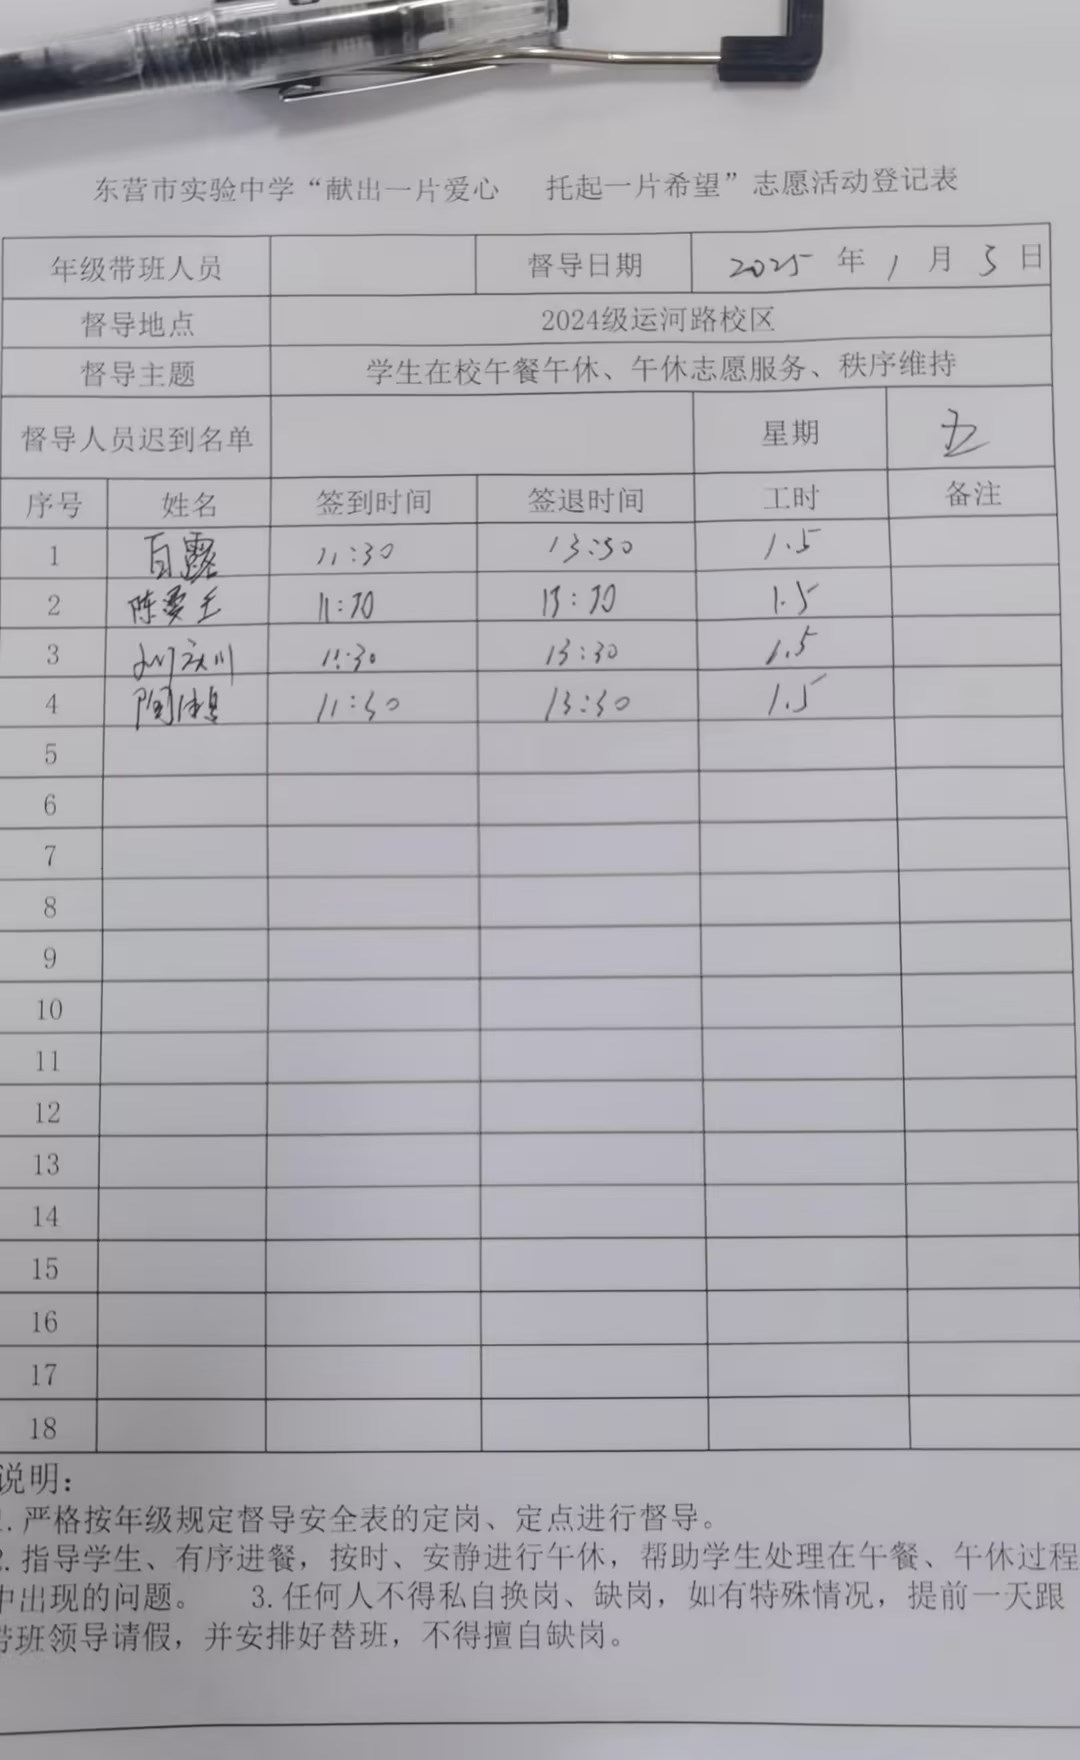 东营市实验中学“献出一片爱心 托起一片希望”志愿活动登记表
年级带班人员 督导日期 2025 年 1 月 3 日
督导地点 2024级运河路校区
督导主题 学生在校午餐午休、午休志愿服务、秩序维持
督导人员迟到名单 星期 五
序号 姓名 签到时间 签退时间 工时 备注
1 白露 11:30 13:30 1.5
2 陈 11:30 13:30 1.5
3 11:30 13:30 1.5
4 11:30 13:30 1.5
5
6
7
8
9
10
11
12
13
14
15
16
17
18
说明：
1.严格按年级规定督导安全表的定岗、定点进行督导。
2.指导学生、有序进餐，按时、安静进行午休，帮助学生处理在午餐、午休过程
中出现的问题。 3.任何人不得私自换岗、缺岗，如有特殊情况，提前一天跟
带班领导请假，并安排好替班，不得擅自缺岗。